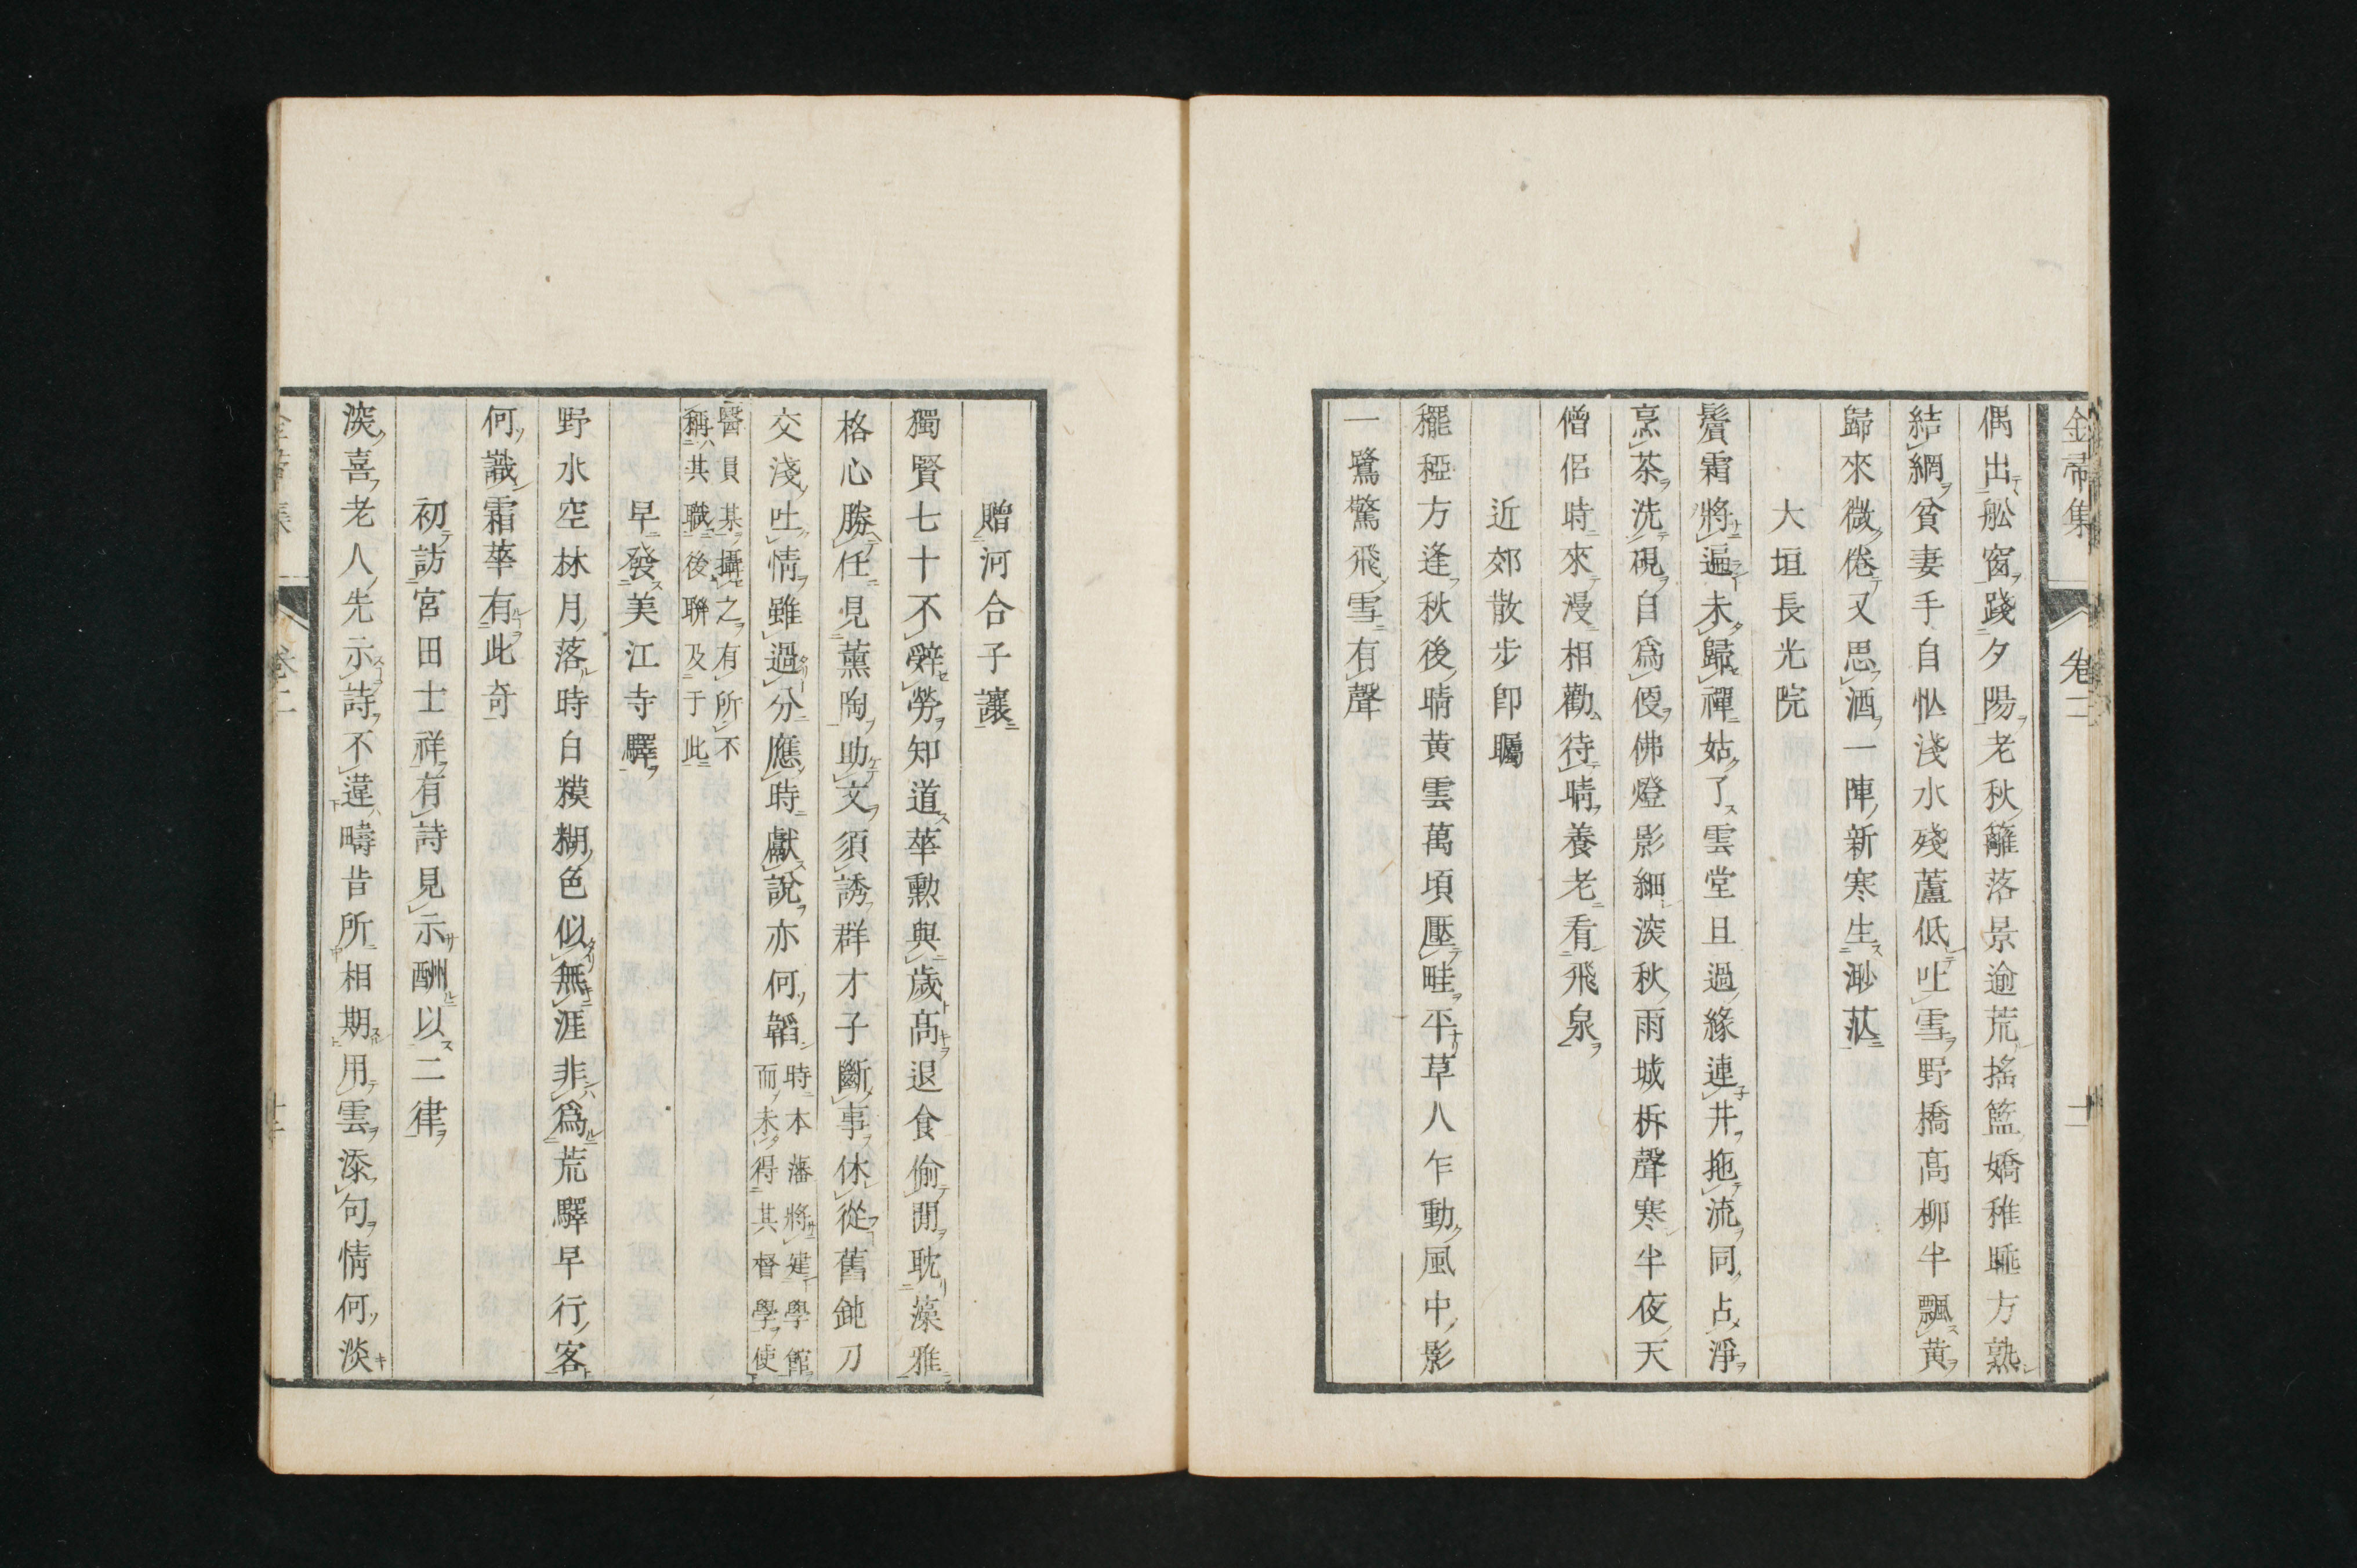 金帚集 卷二
偶出舩窗踐夕陽老秋籬落景逾荒搖籃嬌稚睡方熟
結網貧妻手自忙淺水殘蘆低吐雪野橋髙柳半飄黄
歸來微倦又思酒一陣新寒生渺茫
大垣長光院
鬢霜將遍未歸禪姑了雲堂且過緣連井拖流同占淨
烹茶洗硯自爲優佛燈影細深秋雨城柝聲寒半夜天
僧侶時來漫相勸待晴養老看飛泉
近郊散步卽矚
䆉稏方逢秋後晴黄雲萬頃壓畦平草人乍動風中影
一鷺驚飛雪有聲
贈河合子讓
獨賢七十不辭勞知道莘勲與歳髙退食偷閒耽藻雅
格心勝任見薫陶助文須誘群才子斷事休從舊鈍刀
交淺吐情雖過分應時獻說亦何韜時本藩將建學館
而未得其督學使
醫員某攝之有所不
稱其職後聨及于此
早發美江寺驛
野水空林月落時白糢糊色似無涯非爲荒驛早行客
何識霜華有此奇
初訪宮田士祥有詩見示酬以二律
深喜老人先示詩不違疇昔所相期用雲添句情何淡